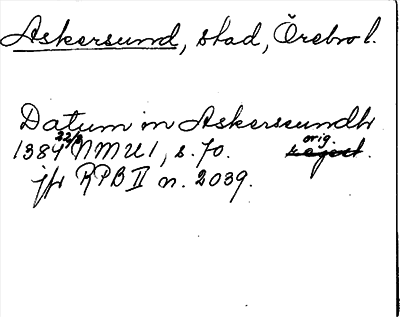 Askersund, stad, Örebro l.
Datum in Askerssundh
1384 22/3 NMU 1, s. 70. orig.
jfr RPB II n. 2039.